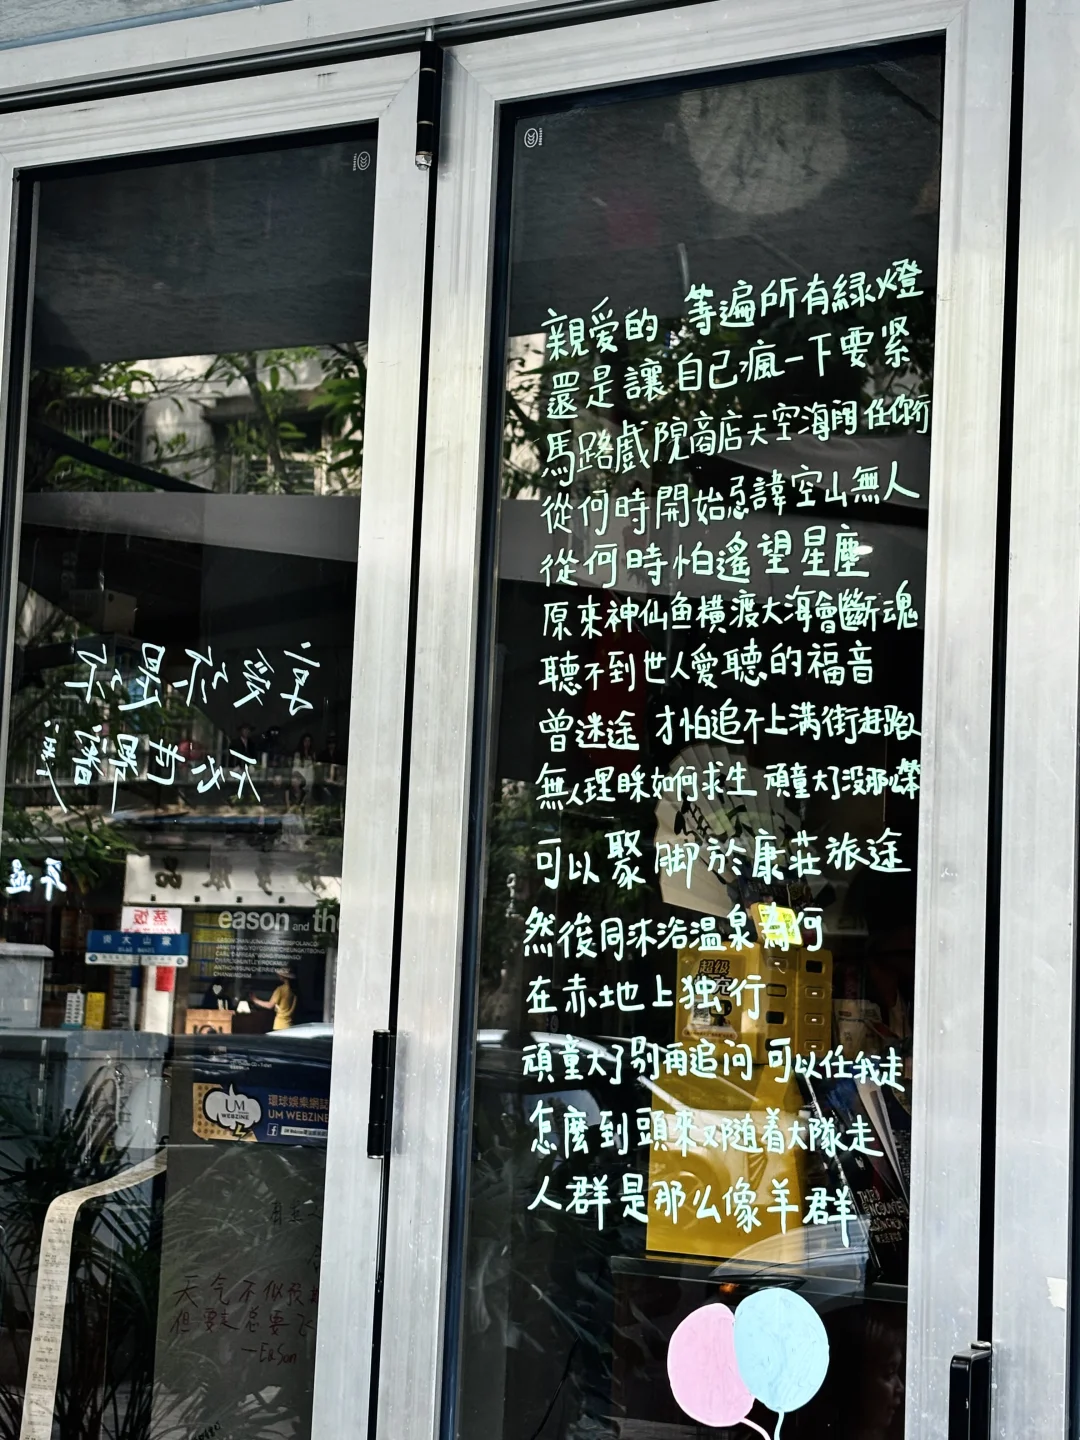 親愛的 等遍所有綠燈
還是讓自己瘋一下要緊
馬路戲院商店天空海闊任你行
從何時開始忌諱空山無人
從何時怕遙望星塵
原來神仙鱼橫渡大海會斷魂
聽不到世人愛聽的福音
曾迷途 才怕追不上满街赶路人
無人理睬如何求生 頑童大了没那么笨
可以聚脚於康莊旅途
然後同沐浴温泉為何
在赤地上独行
頑童大了别再追问 可以任我走
怎麼到頭來又随着大隊走
人群是那么像羊群
蒸饭
eason and th
超级
UM
WEBZINE
環球娛樂網誌
UM WEBZINE
天气不似预
但要走总要飞
—Eason